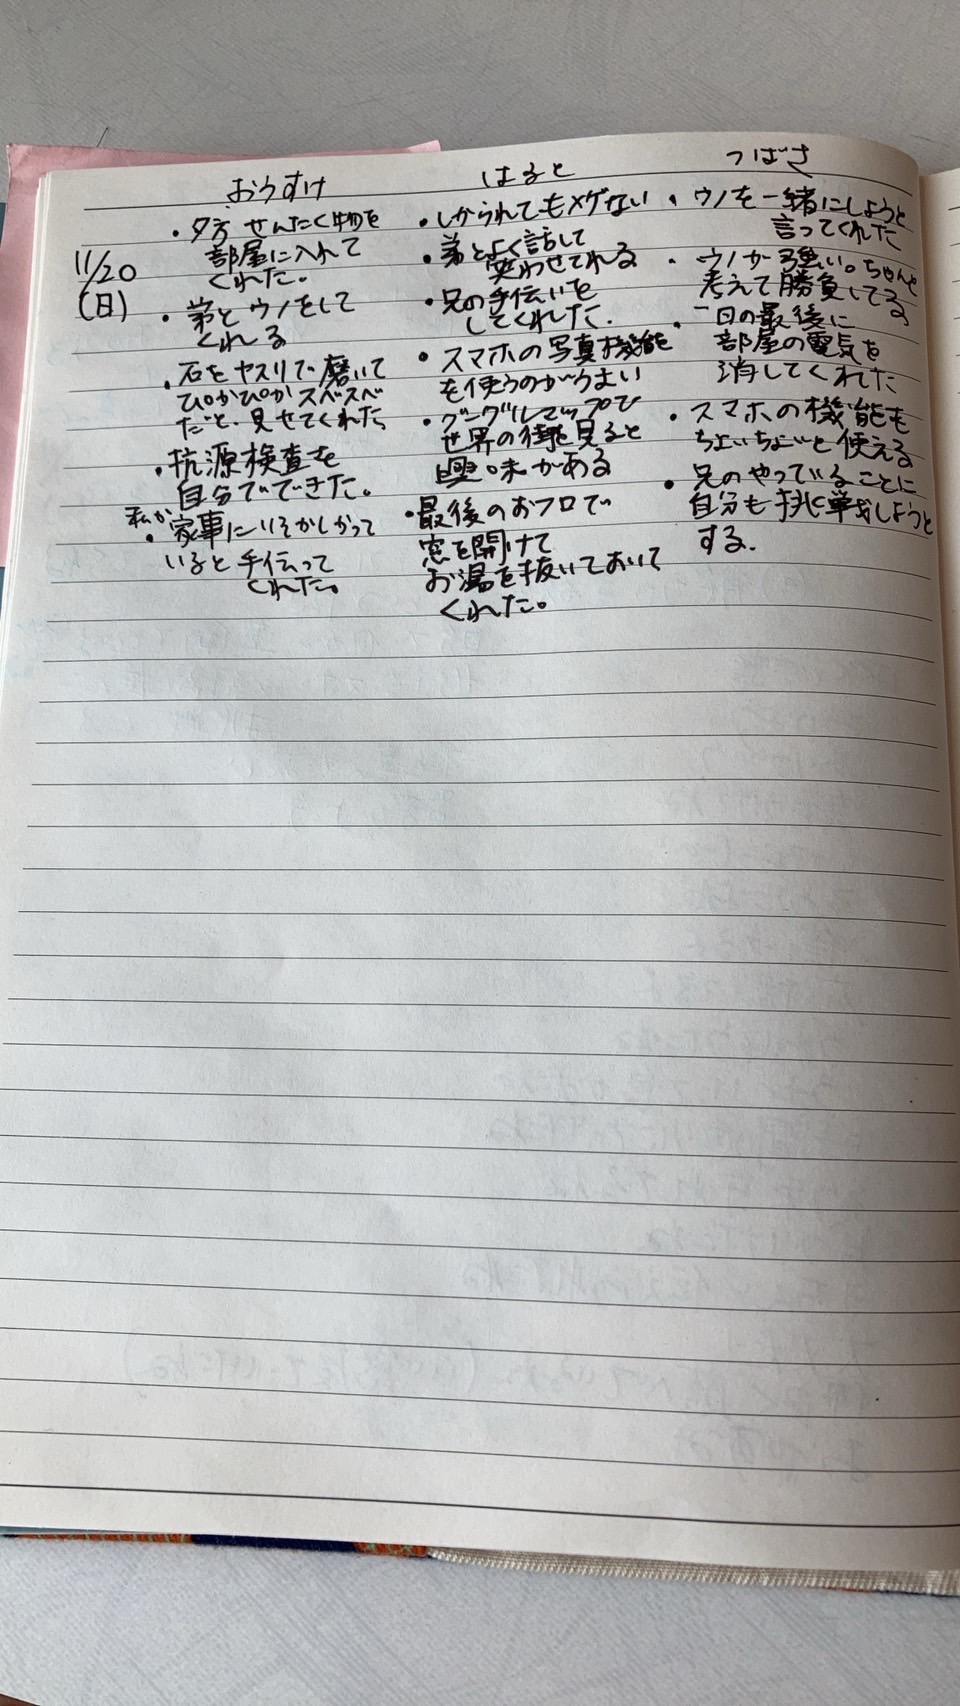 おうすけ
11/20
(日)
・夕方 せんたく物を
部屋に入れて
くれた。
・弟とウノをして
くれる
・石をヤスリで磨いて
ぴかぴか スベスベ
だと、見せてくれた
・抗原検査を
自分でできた。
私が
・家事にいそがしがって
いると手伝って
くれた。
はると
・しかられてもメゲない
・弟とよく話して
笑わせてれる
・兄の手伝いを
してくれた.
・スマホの写真機能
を使うのがうまい
・グーグルマップで
世界の街を見ると
興味がある
・最後のおフロで
窓を開けて
お湯を抜いておいて
くれた。
つばさ
・ウノを一緒にしようと
言ってくれた
・ウノが強い。ちゃんと
考えて勝負してる
・一日の最後に
部屋の電気を
消してくれた
・スマホの機能も
ちょいちょいと使える
・兄のやっていることに
自分も挑戦しようと
する.